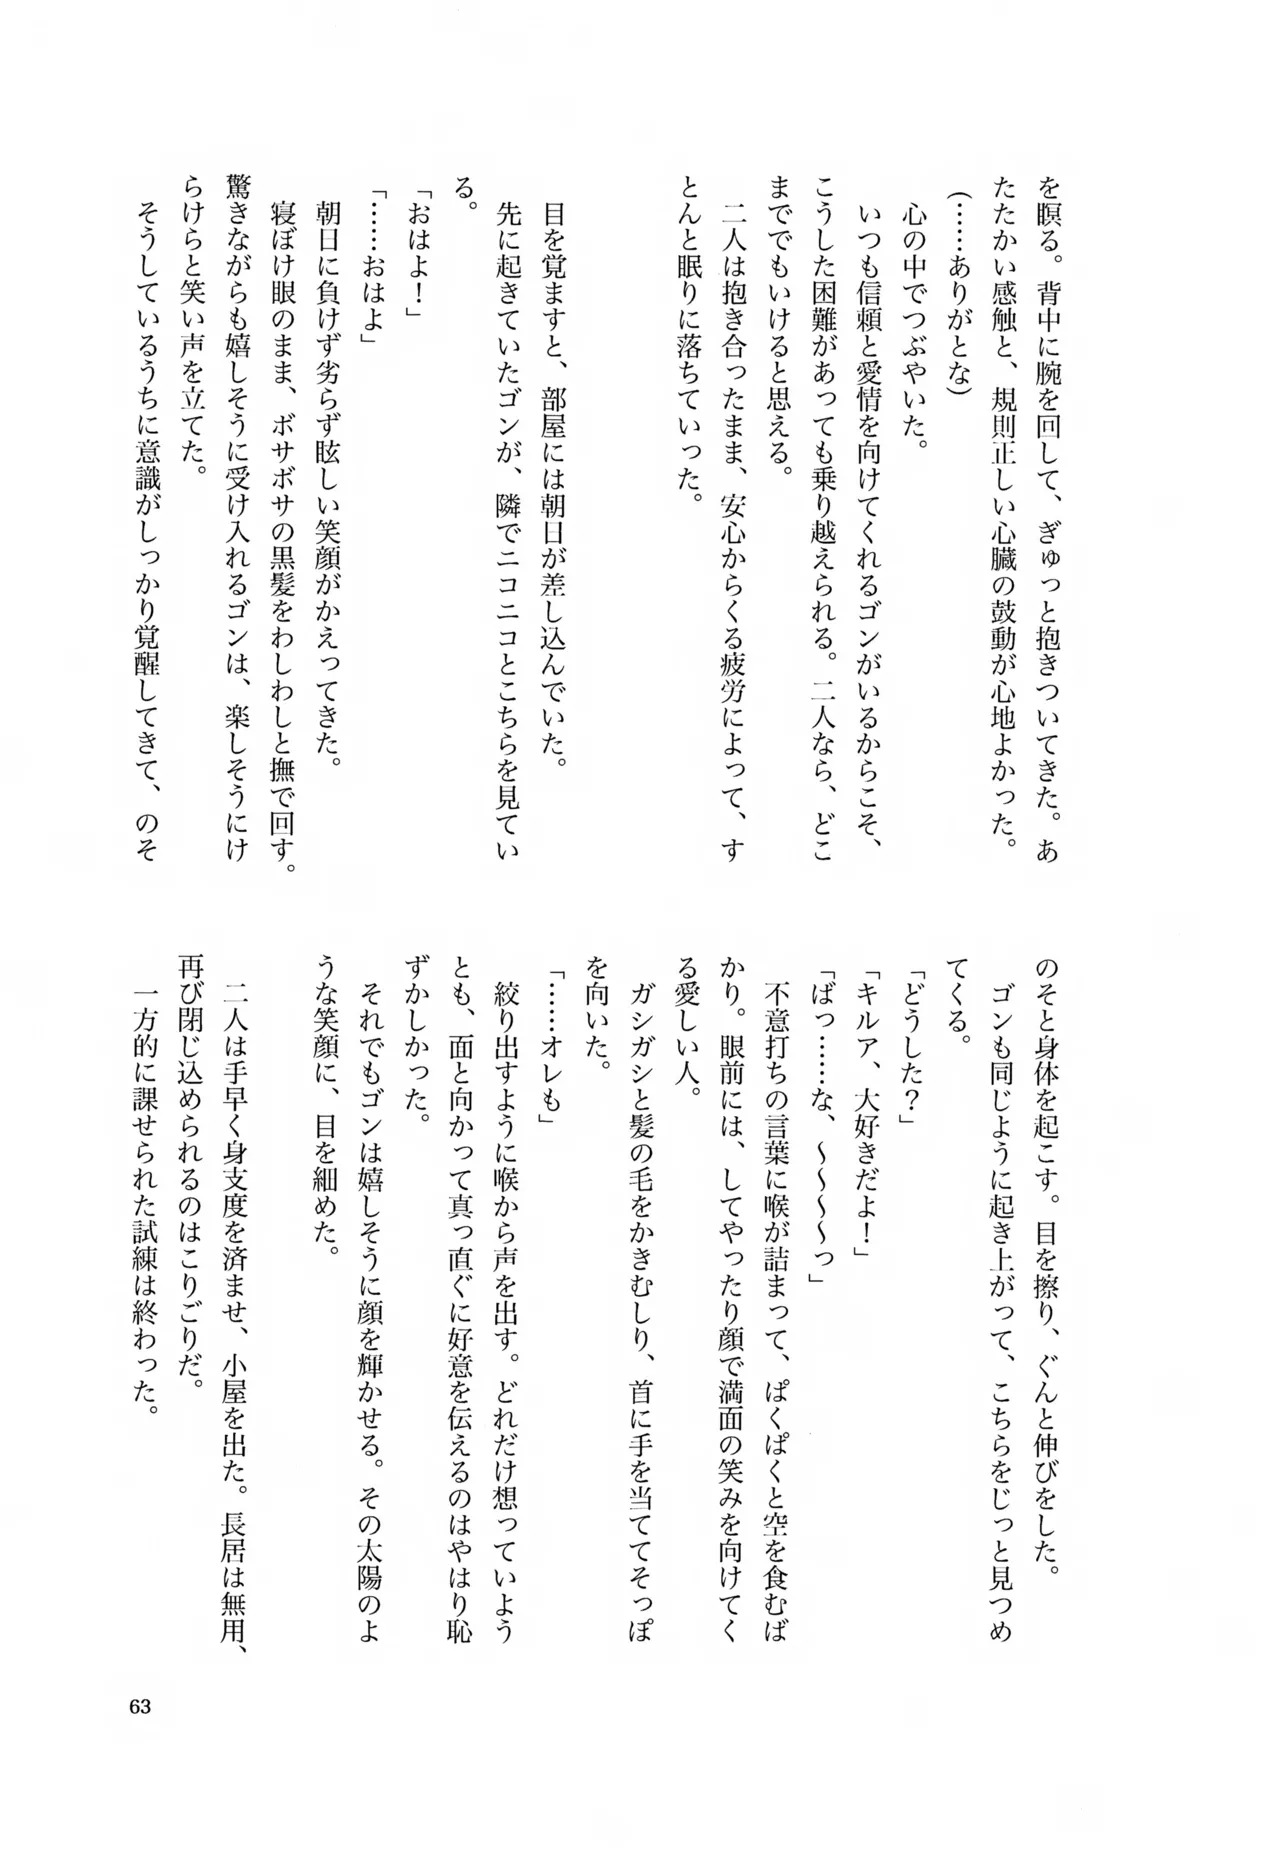 を瞑る。背中に腕を回して、ぎゅっと抱きついてきた。あ
たたかい感触と、規則正しい心臓の鼓動が心地よかった。
(……ありがとな)
心の中でつぶやいた。
いつも信頼と愛情を向けてくれるゴンがいるからこそ、
こうした困難があっても乗り越えられる。二人なら、どこ
まででもいけると思える。
二人は抱き合ったまま、安心からくる疲労によって、す
とんと眠りに落ちていった。
目を覚ますと、部屋には朝日が差し込んでいた。
先に起きていたゴンが、隣でニコニコとこちらを見てい
る。
「おはよ！」
「……おはよ」
朝日に負けず劣らず眩しい笑顔がかえってきた。
寝ぼけ眼のまま、ボサボサの黒髪をわしわしと撫で回す。
驚きながらも嬉しそうに受け入れるゴンは、楽しそうにけ
らけらと笑い声を立てた。
そうしているうちに意識がしっかり覚醒してきて、のそ
のそと身体を起こす。目を擦り、ぐんと伸びをした。
ゴンも同じように起き上がって、こちらをじっと見つめ
てくる。
「どうした？」
「キルア、大好きだよ！」
「ばっ……な、〜〜〜〜っ」
不意打ちの言葉に喉が詰まって、ぱくぱくと空を食むば
かり。眼前には、してやったり顔で満面の笑みを向けてく
る愛しい人。
ガシガシと髪の毛をかきむしり、首に手を当ててそっぽ
を向いた。
「……オレも」
絞り出すように喉から声を出す。どれだけ想っていよう
とも、面と向かって真っ直ぐに好意を伝えるのはやはり恥
ずかしかった。
それでもゴンは嬉しそうに顔を輝かせる。その太陽のよ
うな笑顔に、目を細めた。
二人は手早く身支度を済ませ、小屋を出た。長居は無用、
再び閉じ込められるのはこりごりだ。
一方的に課せられた試練は終わった。
63